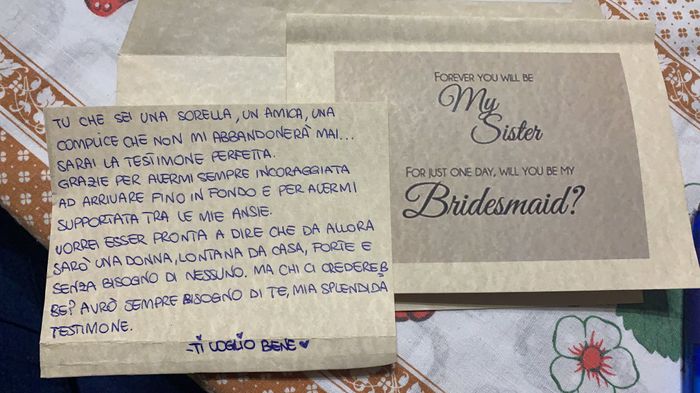 TU CHE SEI UNA SORELLA, UN AMICA, UNA
COMPLICE CHE NON MI ABBANDONERÀ MAI...
SARAI LA TESTIMONE PERFETTA.
GRAZIE PER AVERMI SEMPRE INCORAGGIATA
AD ARRIVARE FINO IN FONDO E PER AVERMI
SUPPORTATA TRA LE MIE ANSIE.
VORREI ESSER PRONTA A DIRE CHE DA ALLORA
SARÒ UNA DONNA, LONTANA DA CASA, FORTE E
SENZA BISOGNO DI NESSUNO. MA CHI CI CREDEREB
BE? AVRÒ SEMPRE BISOGNO DI TE, MIA SPLENDIDA
TESTIMONE.
-TI VOGLIO BENE♥
FOREVER YOU WILL BE
My
Sister
FOR JUST ONE DAY, WILL YOU BE MY
Bridesmaid?